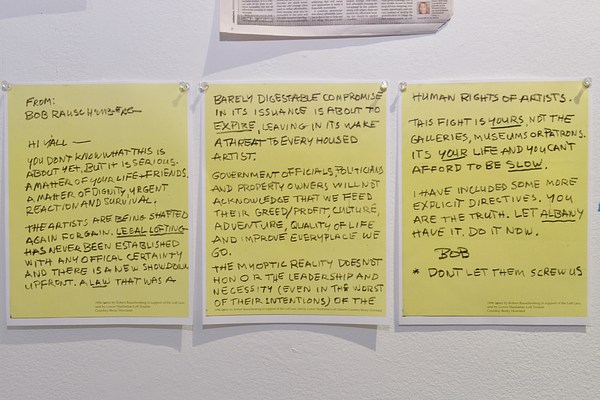 FROM:
BOB RAUSCHENBERG
HI YÁLL —
YOU DON'T KNOW WHAT THIS IS
ABOUT YET, BUT IT IS SERIOUS.
A MATTER OF YOUR LIFE + FRIENDS.
A MATTER OF DIGNITY, URGENT
REACTION AND SURVIVAL.
THE ARTISTS ARE BEING SHAFTED
AGAIN FOR GAIN. LEGAL LOFTING
HAS NEVER BEEN ESTABLISHED
WITH ANY OFFICAL CERTAINTY
AND THERE IS A NEW SHOWDOWN
UPFRONT. A LAW THAT WAS A
BARELY DIGESTABLE COMPROMISE
IN ITS ISSUANCE IS ABOUT TO
EXPIRE, LEAVING IN ITS WAKE
A THREAT TO EVERY HOUSED
ARTIST.
GOVERNMENT OFFICIALS, POLITICIANS
AND PROPERTY OWNERS WILL NOT
ACKNOWLEDGE THAT WE FEED
THEIR GREED/PROFIT, CULTURE,
ADVENTURE, QUALITY OF LIFE
AND IMPROVE EVERYPLACE WE
GO.
THE MYOPTIC REALITY DOES NOT
HONOR THE LEADERSHIP AND
NECESSITY (EVEN IN THE WORST
OF THEIR INTENTIONS) OF THE
HUMAN RIGHTS OF ARTISTS.
THIS FIGHT IS YOURS, NOT THE
GALLERIES, MUSEUMS OR PATRONS.
ITS YOUR LIFE AND YOU CAN'T
AFFORD TO BE SLOW.
I HAVE INCLUDED SOME MORE
EXPLICIT DIRECTIVES. YOU
ARE THE TRUTH. LET ALBANY
HAVE IT. DO IT NOW.
BOB
* DON'T LET THEM SCREW US